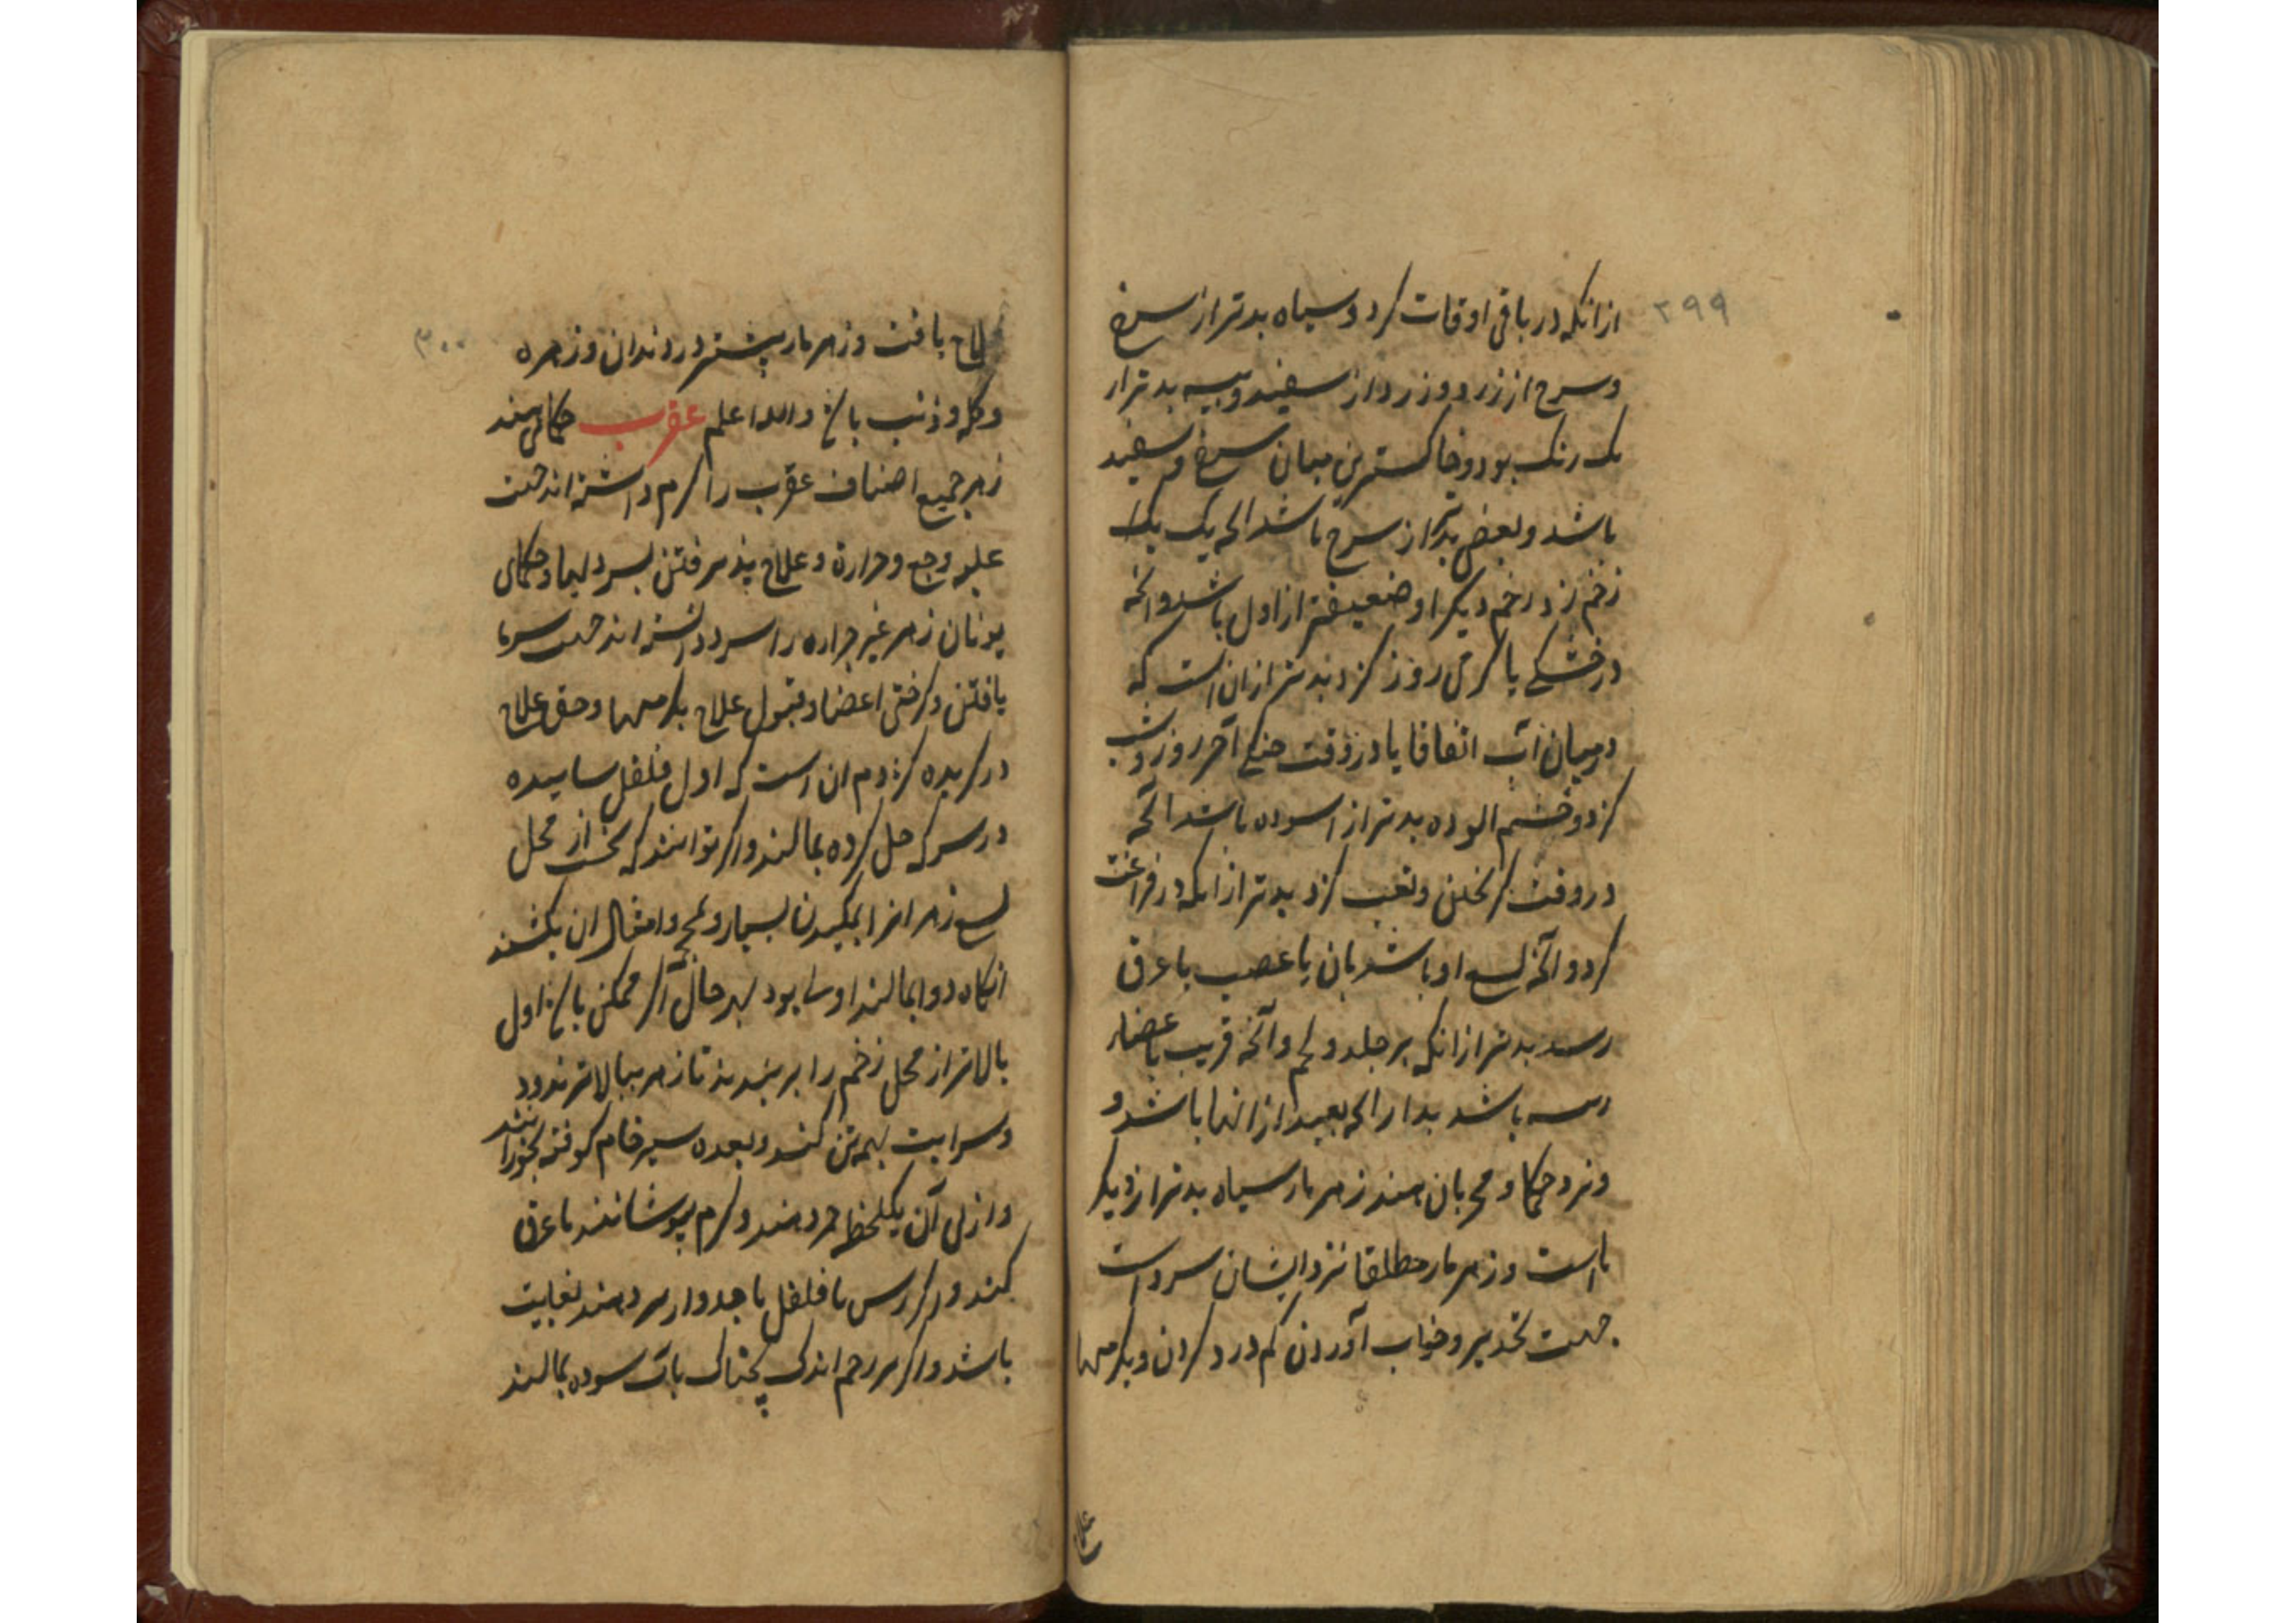 ۲۹۹
ازانکه در باقی اوقات کزد و سیاه بدتر از سرخ
و سرخ از زرد و زرد از سفید و پیسه بدتر از
یک رنک بود و خاکسترین میان سرخ و سفید
باشد و بعضی بدتر از سرخ باشد الخ یک یک را
زخم زد زخم دیکر او ضعیفتر از اول باشد و انچه
در خشکی یا کرمی روز کزد بدتر از ان است که
در میان آب اتفاقا یا در وقت خنکی آخر روز و شب
کزد و خشم الوده بدتر از اسوده باشد آنچه
در وقت کریختن و تعب کزد بدتر از انکه در فراغت
کزد و آنچه لسع او باشریان یا عصب یا عرق
رسد بدتر از انکه بر جلد و لحم و آنچه قریب باعضاء
رییسه باشد بدتر از انچه بعید از انها باشد و
و نزد حکما و مجربان هند زهر مار سیاه بدتر از دیکر
ما است و زهر مار مطلقا نزد ایشان سرد است
جهت تخدیر و خواب آوردن کم درد کردن و بکرمیها
علاج
۳۰۰
علاج یافت و زهر مار بیشتر در دندان و زهره
و کله و ذنب باشد و الله اعلم عقرب حکمای هند
زهر جمیع اصناف عقرب را کرم داشته اند جهت
غلبه وجع و حرارة و علاج پذیرفتن بسردیها و حکمای
یونان زهر غیر جراره را سرد دانسته اند جهت سرما
یافتن و کرختی اعضا و قبول علاج بکرمیها و حق علاج
در کزیده کژدم ان است که اول فلفل ساییده
در سرکه حل کرده بمالند و اکر توانند که نخست از محل
لسع زهر انرا بمکیدن بسیار و محجمه و امثال ان بکشند
انکاه دوا بمالند اولی بود بهر حال اکر ممکن باشد اول
بالاتر از محل زخم را بر بندند تا زهر ببالاتر نرود
و سرایت بهمه تن نکند و بعده سیر خام کوفته بخورانند
و از پی آن یکلحظه خمر دهند و کرم بپوشانند تا عرق
کند و اکر کرس با فلفل یا جدوار دهند بغایت
باشد و اکر بر زخم اندک بچناک باب سوده بمالند